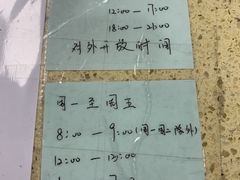 12:00 — 17:00
18:00 — 21:00
对外开放时间
周一至周五
8:00 — 9:00(周一周二除外)
12:00 — 13:00